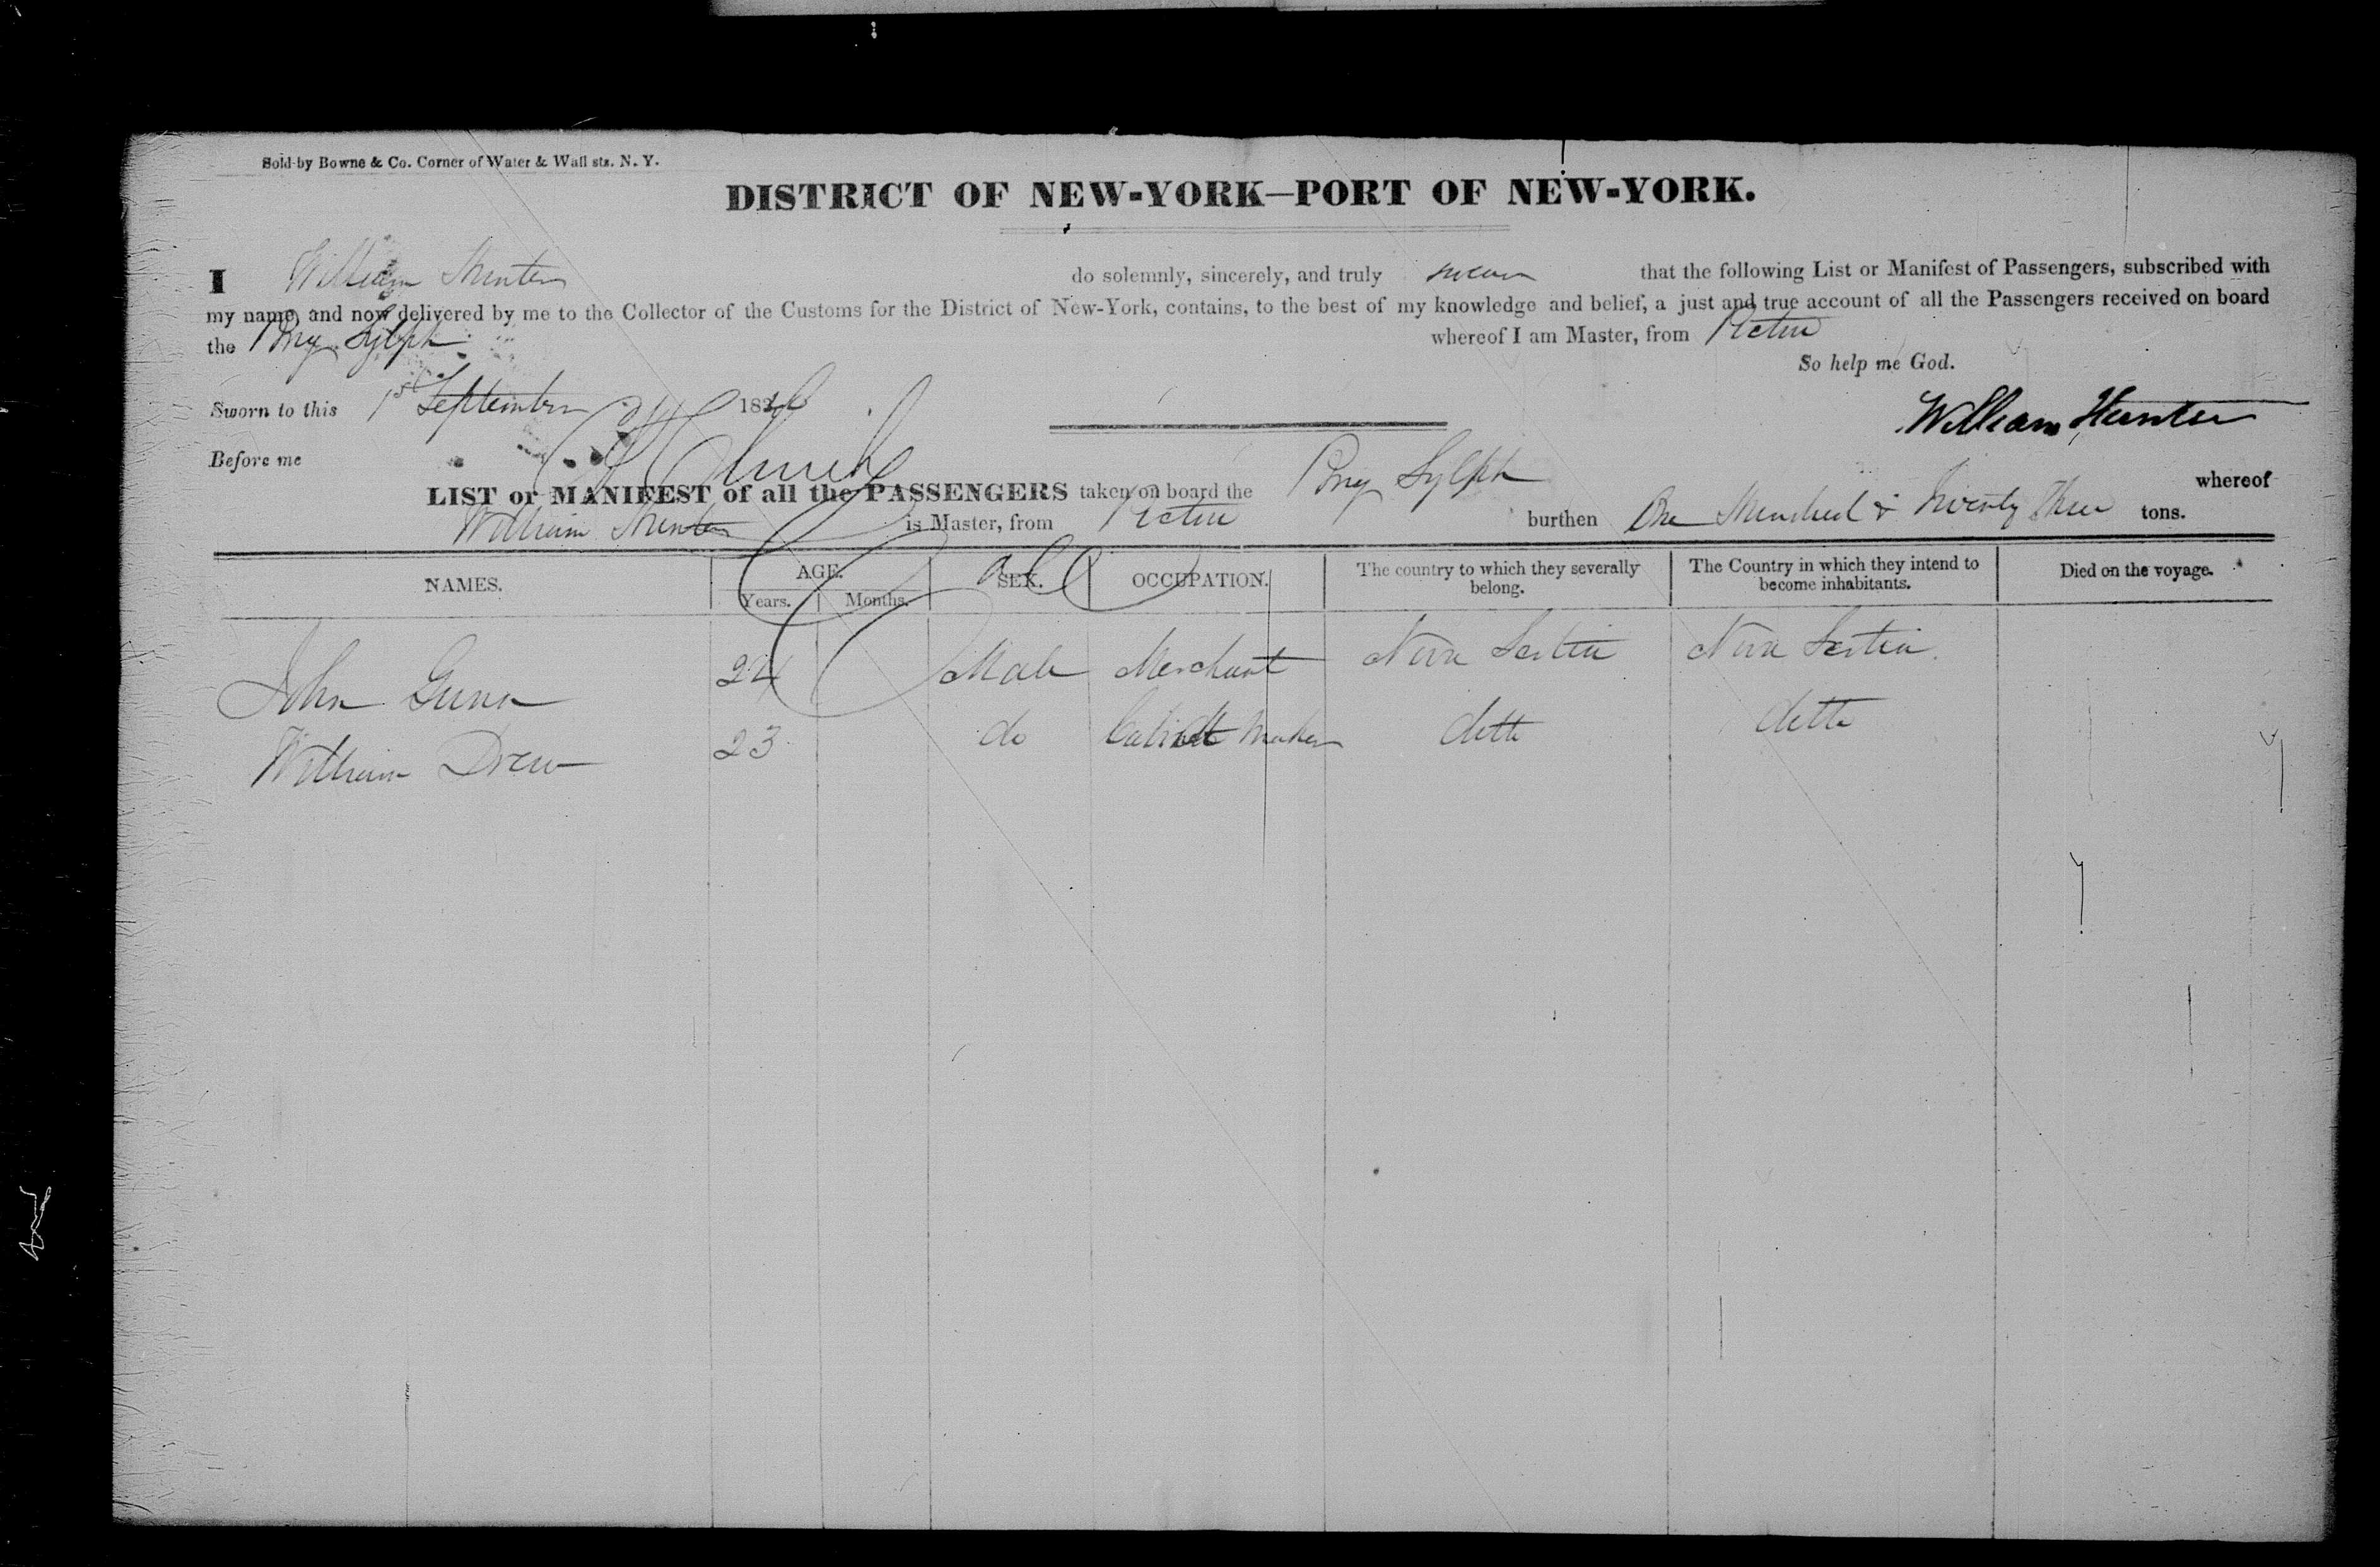 Sold by Bowne & Co. Corner of Water & Wall sts. N. Y.
DISTRICT OF NEW-YORK—PORT OF NEW-YORK.
I William Hunter do solemnly, sincerely, and truly swear that the following List or Manifest of Passengers, subscribed with
my name, and now delivered by me to the Collector of the Customs for the District of New-York, contains, to the best of my knowledge and belief, a just and true account of all the Passengers received on board
the Brig Sylph whereof I am Master, from Pictou
So help me God.
Sworn to this 1st September 183
William Hunter
Before me
LIST or MANIFEST of all the PASSENGERS taken on board the Brig Sylph whereof
William Hunter is Master, from Pictou burthen One Hundred & Twenty Three tons.
NAMES. AGE. SEX. OCCUPATION. The country to which they severally belong. The Country in which they intend to become inhabitants. Died on the voyage.
Years. Months.
John Gunn 24 Male Merchant Nova Scotia Nova Scotia
William Drew 23 do Cabinett Maker ditto ditto